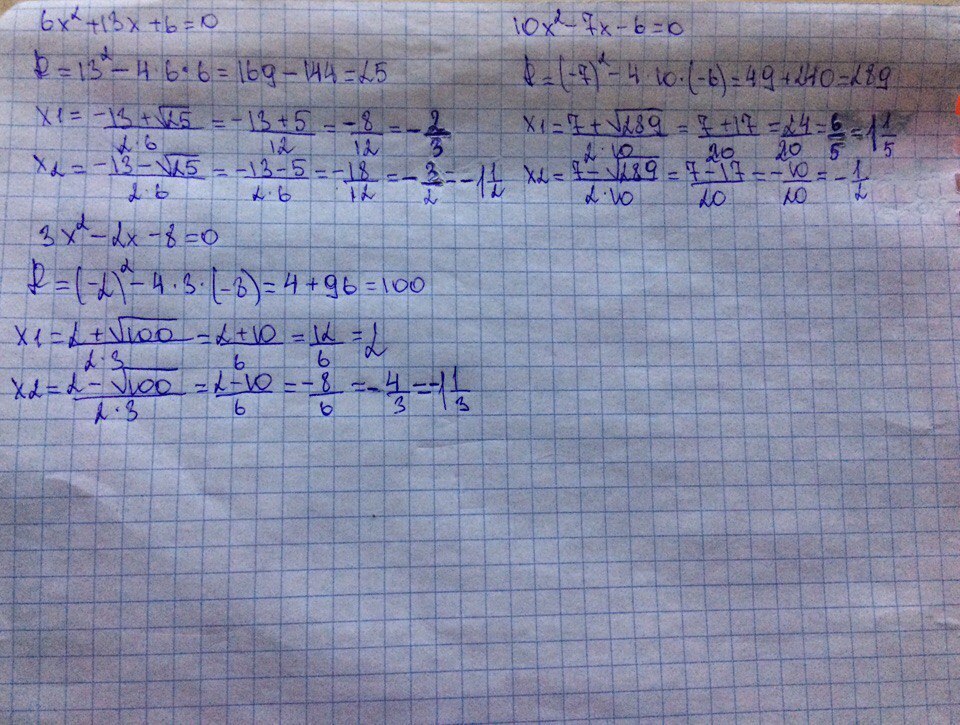 6x²+13x+6=0
D=13²-4·6·6=169-144=25
x1=(-13+√25)/(2·6)=(-13+5)/12=-8/12=-2/3
x2=(-13-√25)/(2·6)=(-13-5)/(2·6)=-18/12=-3/2=-1 1/2
10x²-7x-6=0
D=(-7)²-4·10·(-6)=49+240=289
x1=(7+√289)/(2·10)=(7+17)/20=24/20=6/5=1 1/5
x2=(7-√289)/(2·10)=(7-17)/20=-10/20=-1/2
3x²-2x-8=0
D=(-2)²-4·3·(-8)=4+96=100
x1=(2+√100)/(2·3)=(2+10)/6=12/6=2
x2=(2-√100)/(2·3)=(2-10)/6=-8/6=-4/3=-1 1/3